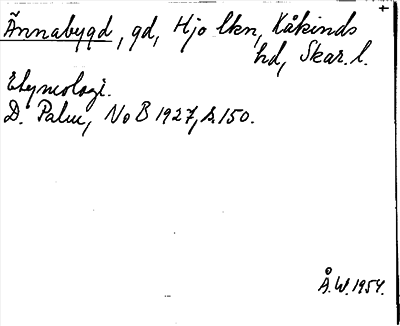 Ännabygd, gd, Hjo lkn, Kåkinds
hd, Skar. l.
Etymologi.
D. Palm, NoB 1927, s. 150.
Å.W. 1954.